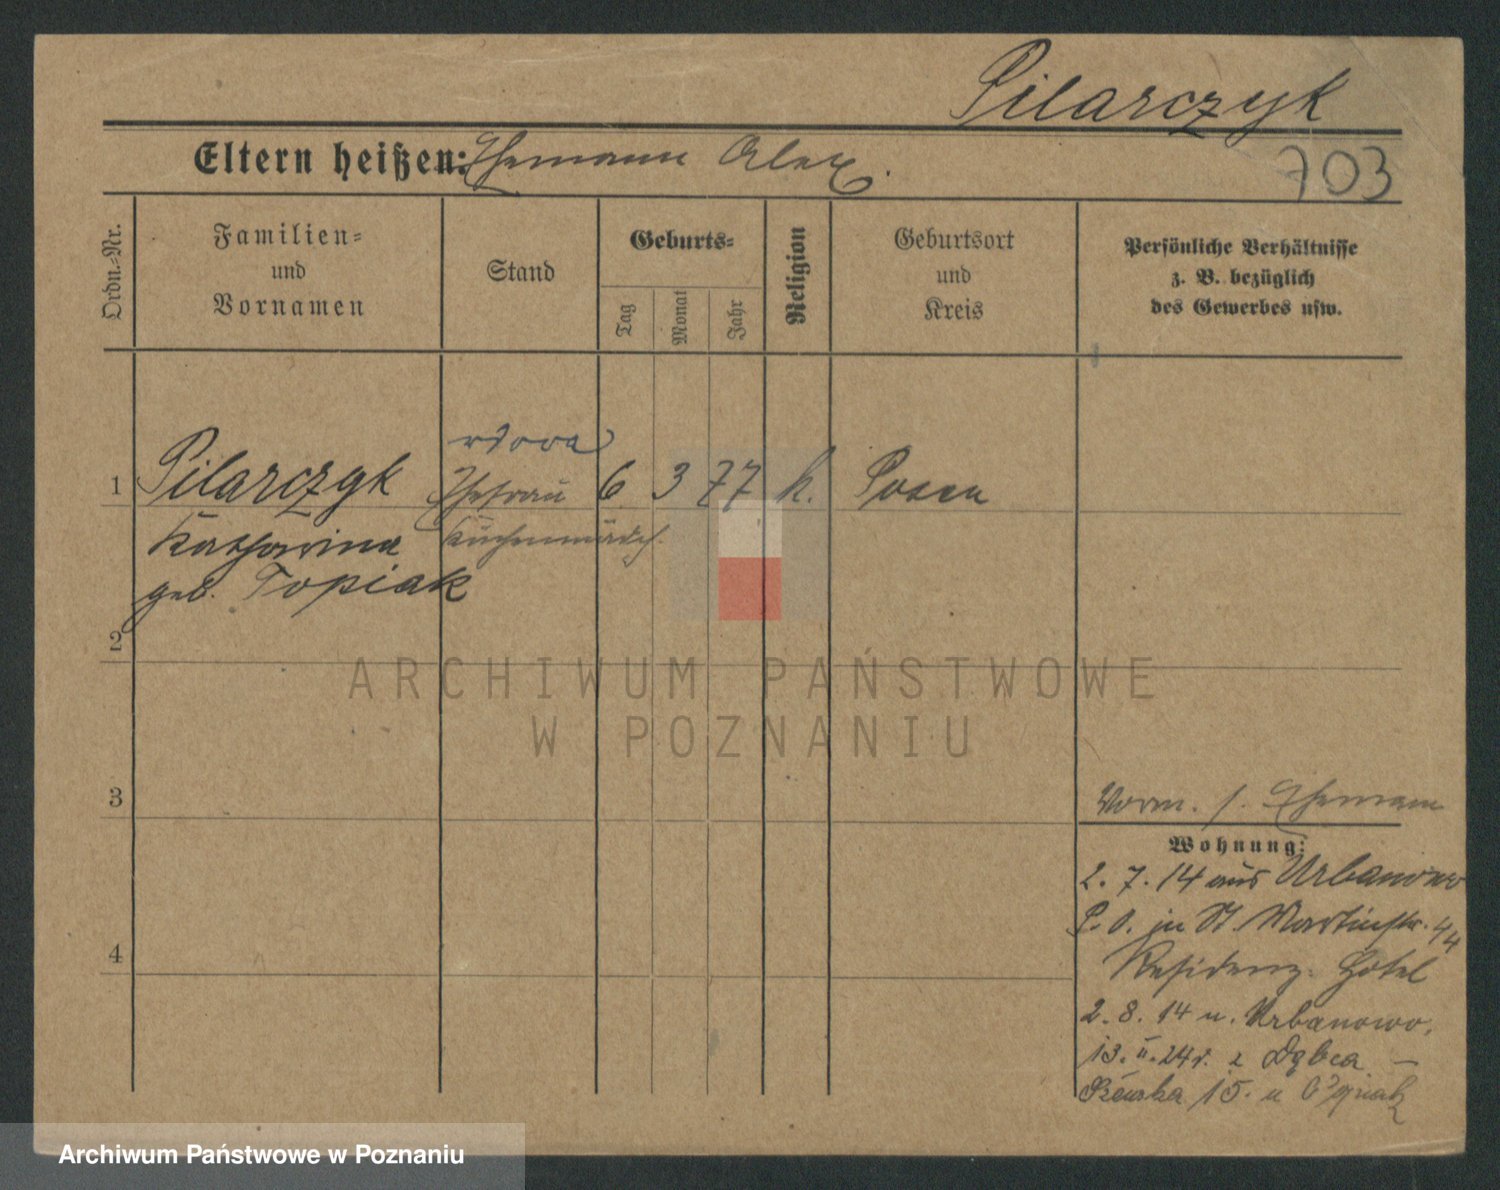 Pilarczyk
Eltern heißen: Ehemann Alex.
703
Ordn.-Nr.
Familien-
und
Vornamen
Stand
Geburts-
Tag
Monat
Jahr
Religion
Geburtsort
und
Kreis
Persönliche Verhältnisse
z. B. bezüglich
des Gewerbes usw.
wdowa
1 Pilarczyk Ehefrau 6 3 77 k. Posen
Katharina Küchenmädch.
geb. Topiak
2
ARCHIWUM PAŃSTWOWE
W POZNANIU
3
Vorm. s. Ehemann
Wohnung:
2. 7. 14 aus Urbanowo
P. O. in St. Martinstr. 44
4
Residenz-Hotel
2. 8. 14 n. Urbanowo.
13. II. 24 r. z Dębca –
15. u
Archiwum Państwowe w Poznaniu